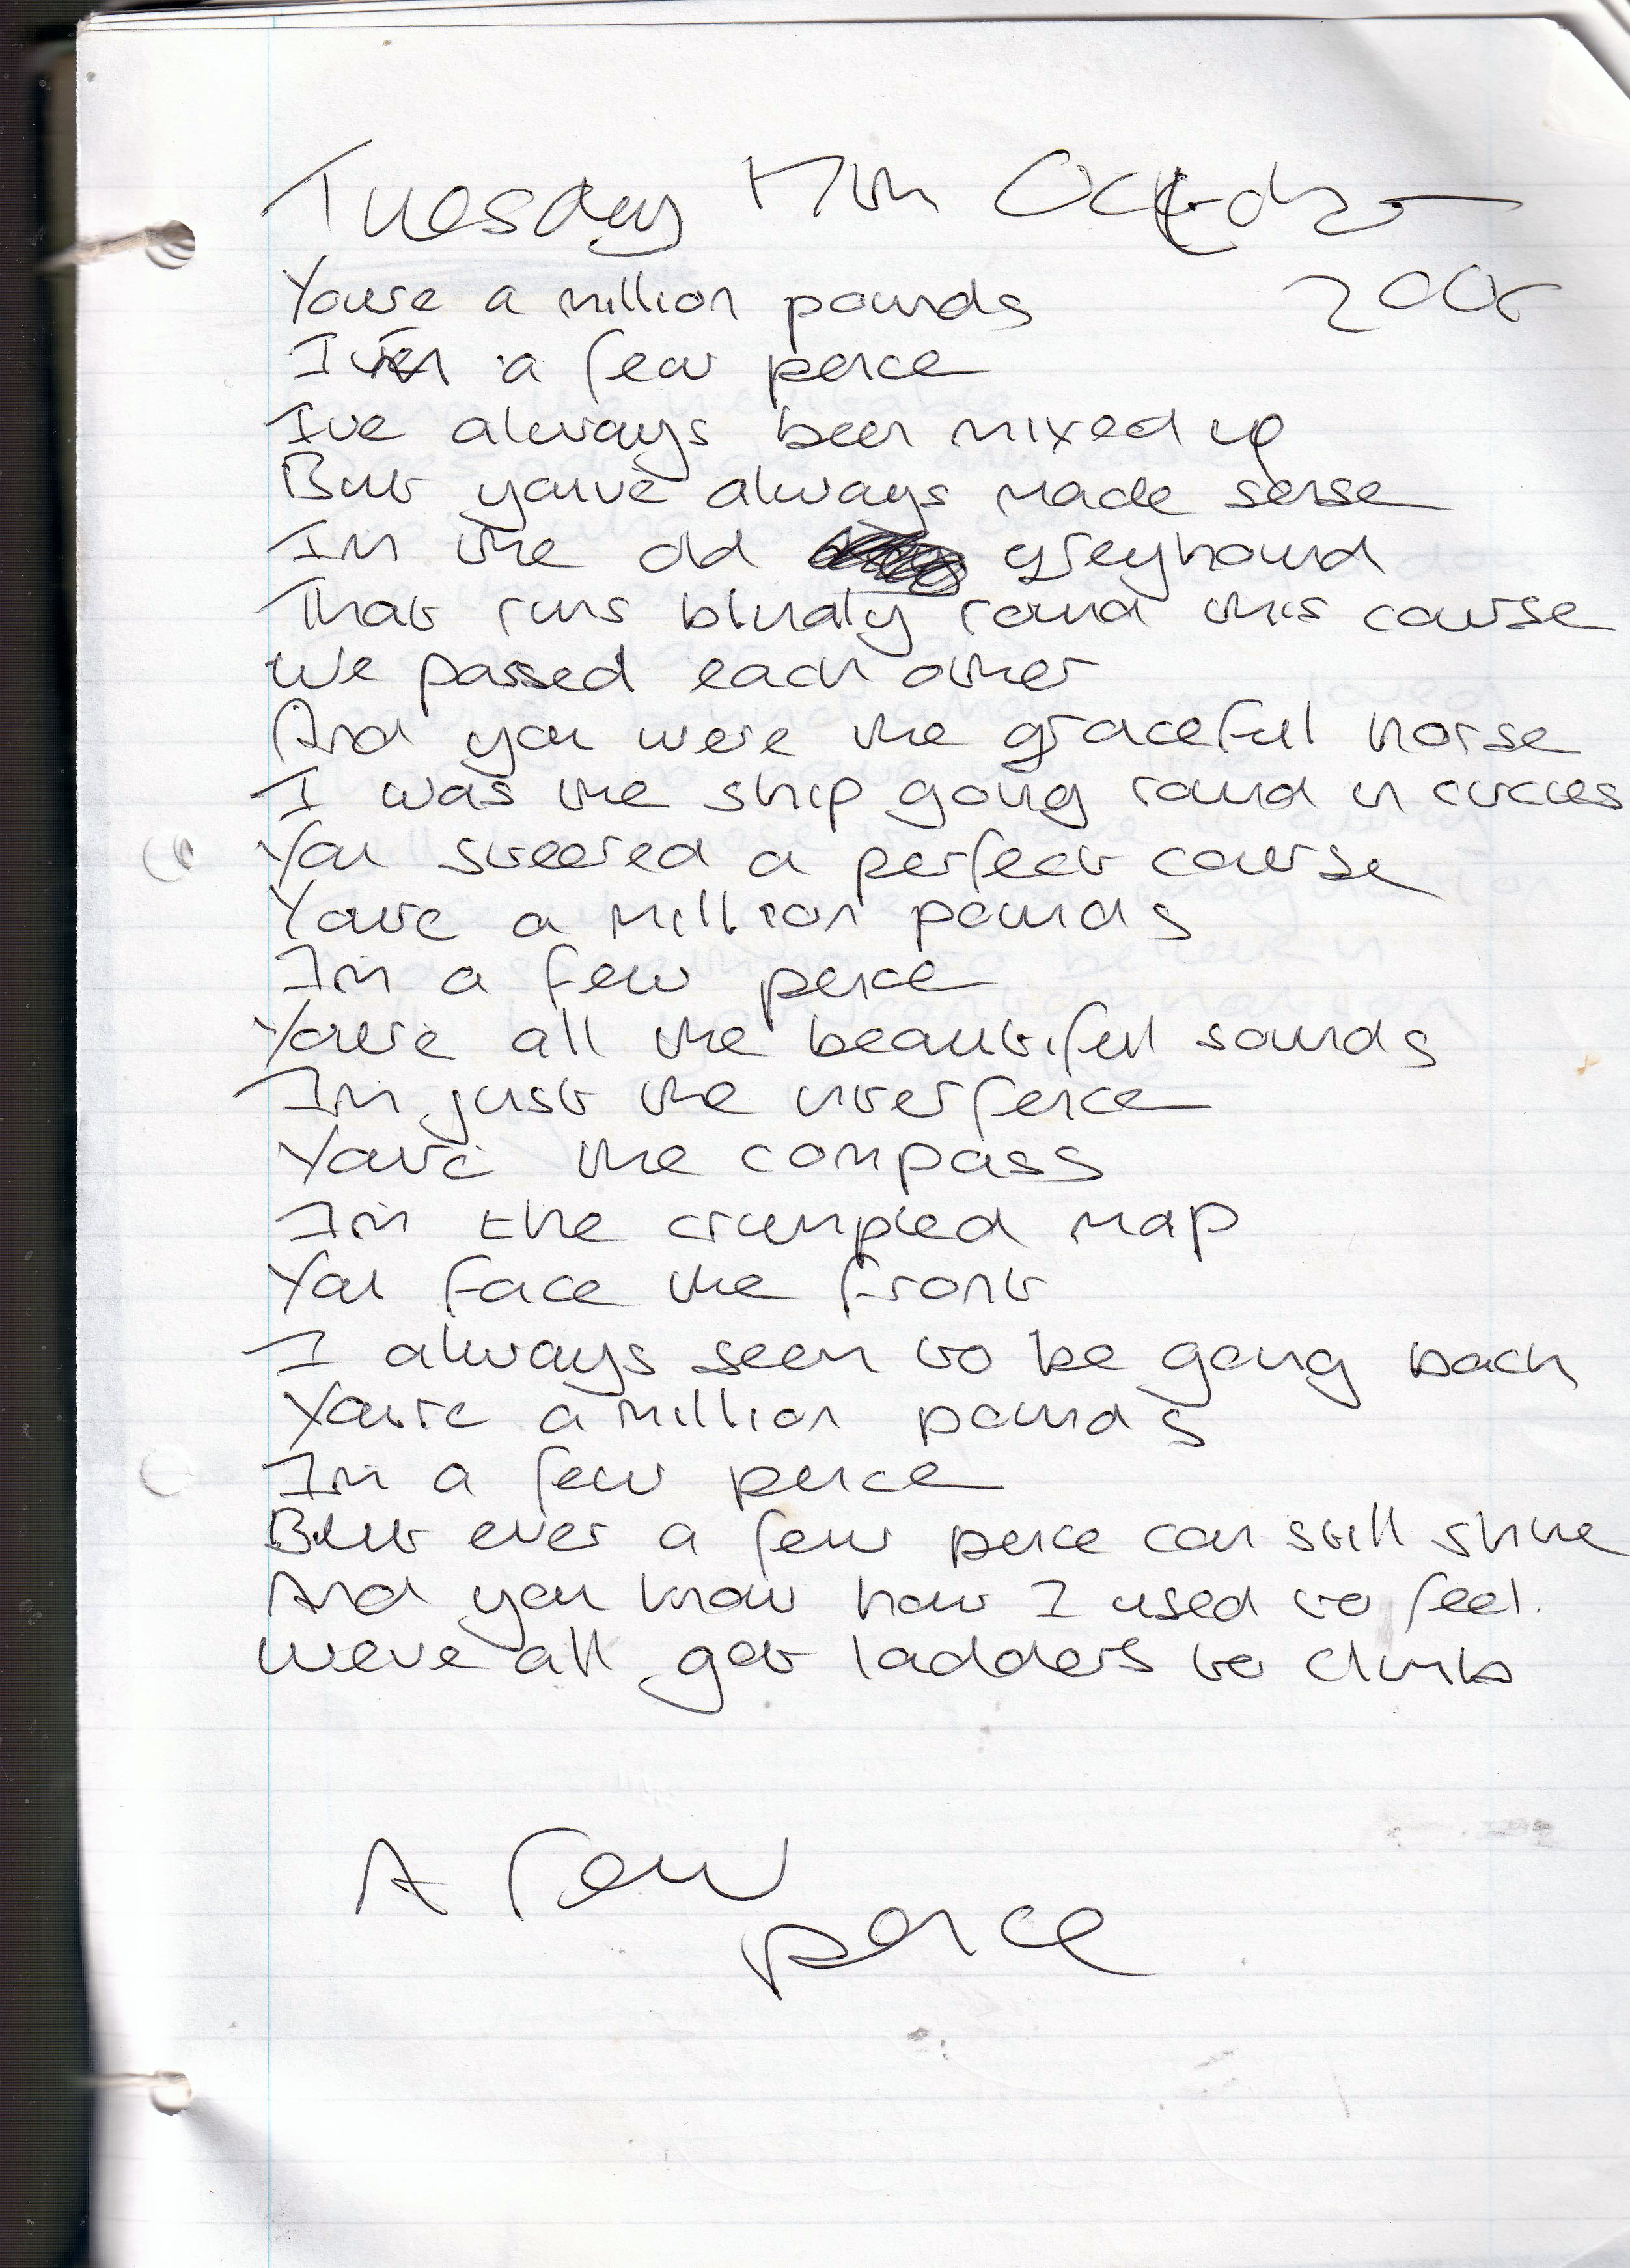 Tuesday 17th October
2006
Youre a million pounds
Im a few pence
Ive always been mixed up
But youve always made sense
Im the old greyhound
That runs blindly round this course
We passed each other
And you were the graceful horse
I was the ship going round in circles
You steered a perfect course
Youre a million pounds
Im a few pence
Youre all the beautiful sounds
Im just the interfence
Youre the compass
Im the crumpled map
You face the front
I always seem to be going back
Youre a million pounds
Im a few pence
But even a few pence can still shine
And you know how I used to feel.
Weve all got ladders to climb
A few
pence